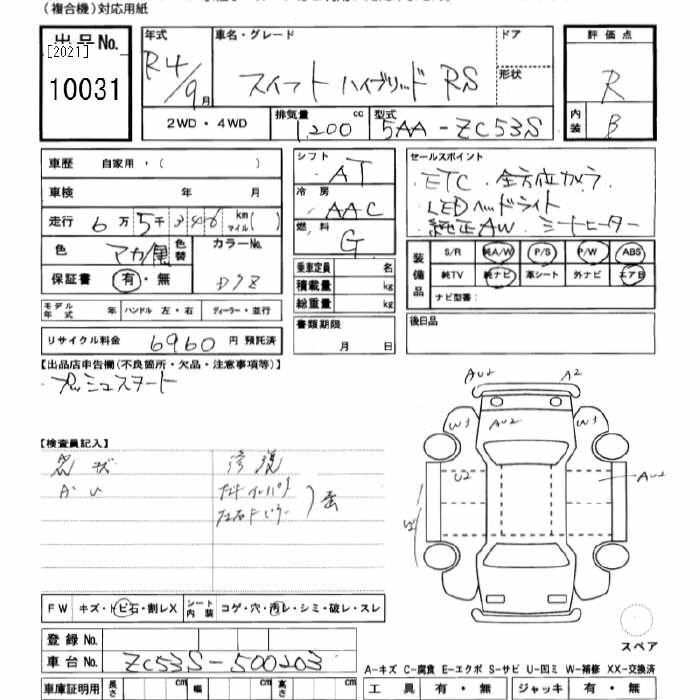 （複合機）対応用紙
出品No.
[2021]
10031
年式
R4/9月
車名・グレード
スイフト ハイブリッド RS
ドア
形状
2WD・4WD
排気量 cc
1,200
型式
5AA-ZC53S
評価点
R
内装
B
車歴 自家用・( )
車検 年 月
走行 6万5千346 km マイル( )
色
色替
カラーNo.
保証書 有・無
モデル年式 年 ハンドル 左・右 ディーラー・並行
リサイクル料金 6960 円 預託済
シフト
AT
冷房
AAC
燃料
G
乗車定員 名
積載量 kg
総重量 kg
書類期限
月 日
セールスポイント
・ETC ・全方位カメラ
・LEDヘッドライト
・純正AW ・シートヒーター
装備品
S/R 純A/W P/S P/W ABS
純TV 純ナビ 革シート 外ナビ エアB
ナビ型番：
後日品
【出品店申告欄(不良箇所・欠品・注意事項等)】
・プッシュスタート
【検査員記入】
修復
AU2 A2
W3 AU2 W3
U2 AU2
FW キズ・トビ石・割レX シート内装 コゲ・穴・汚レ・シミ・破レ・スレ
登録No.
車台No. ZC53S-500203
スペア
A-キズ C-腐食 E-エクボ S-サビ U-凹ミ W-補修 XX-交換済
車庫証明用 長さ cm 幅 cm 高さ cm
工具 有・無 ジャッキ 有・無